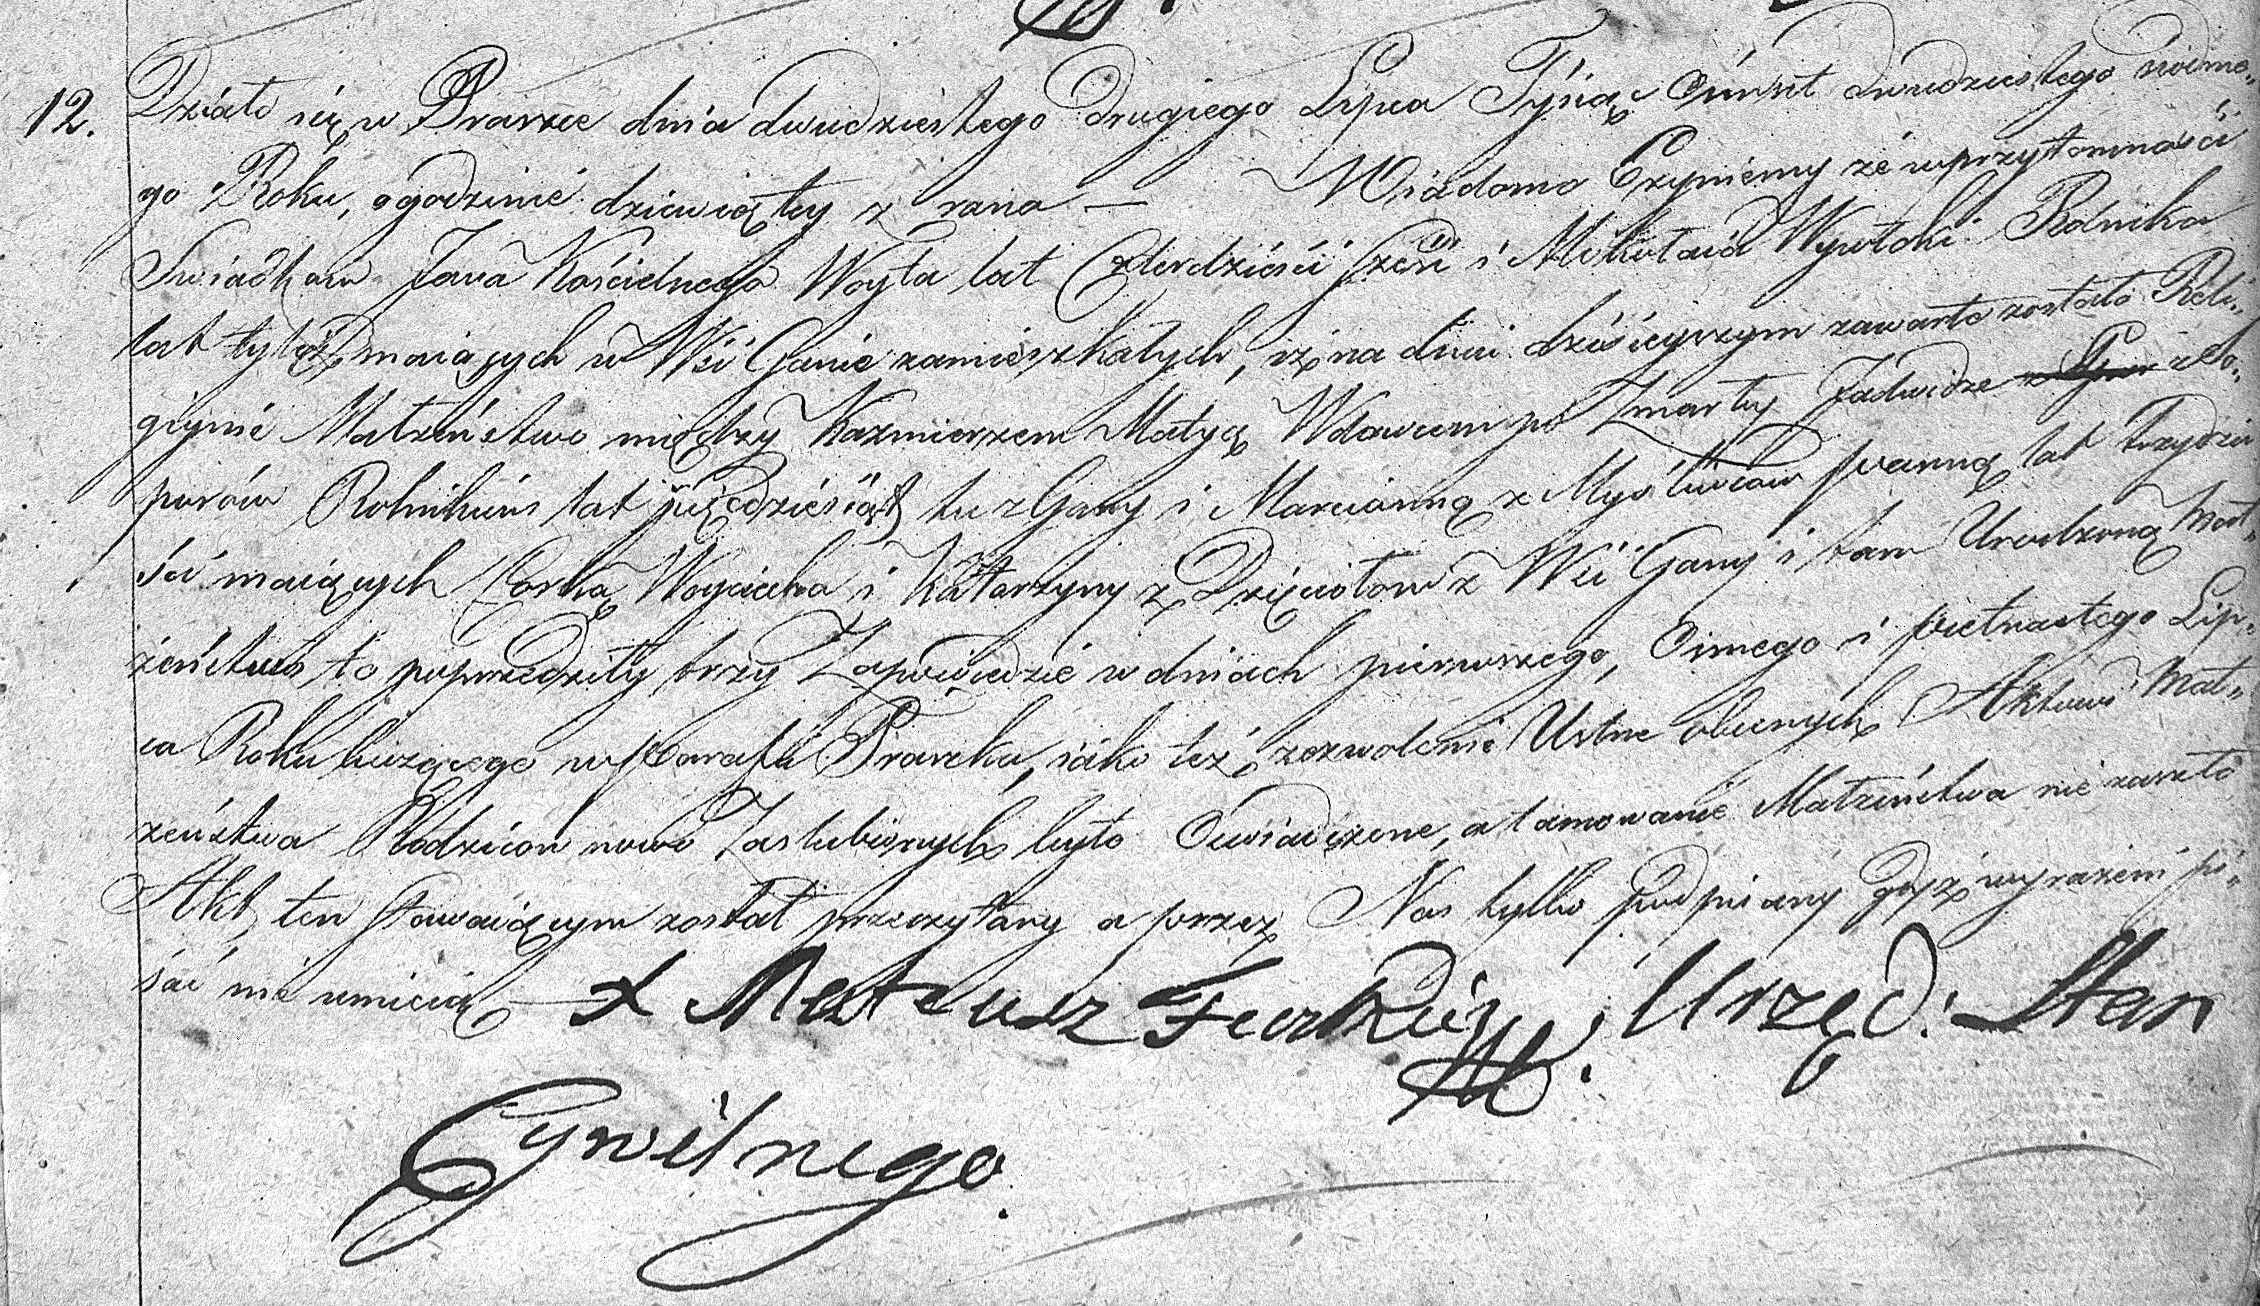 12. Działo się w Praszce dnia dwudziestego drugiego Lipca Tysiąc Ośmset dwudziestego siódme„
go Roku, o godzinie dziewiątey z rana — Wiadomo Czyniemy że w przytomności
Swiadków Jana Kościelnego Woyta lat Czterdzieści i Mikołaia Wywłoki Rolnika
lat tyleż maiących w Wsi Ganie zamieszkałych, iż na dniu dzisieyszym zawarte zostało Reli„
giynie Małżeństwo między Kazmierzem Matyą Wdowcem po Zmarłey Jadwidze z So„
porów Rolnikiem lat pięćdziesiąt tu z Gany i Maryianną z Myśliwców panną lat trzydzie
ści maiących Corką Woyciecha i Katarzyny z Dzięciołow z Wsi Gany i tam Urodzoną Mał„
żeństwo to poprzedziły trzy Zapowiedzie w dniach pierwszego, Osmego i pietnastego Lip„
ca Roku bieżącego w Parafii Praszka, iako też zezwolenie Ustne obecnych Aktowi Mał„
żeństwa Rodziców nowo Zaslubionych było Oświadczone, a tamowanie Małżeństwa nie zaszło
Akt ten stawaiącym został przeczytany a przez Nas tylko podpisany gdyż wyrażeni pi„
sać nie umieią — X Mateusz Urzęd: Stan
Cywilnego.